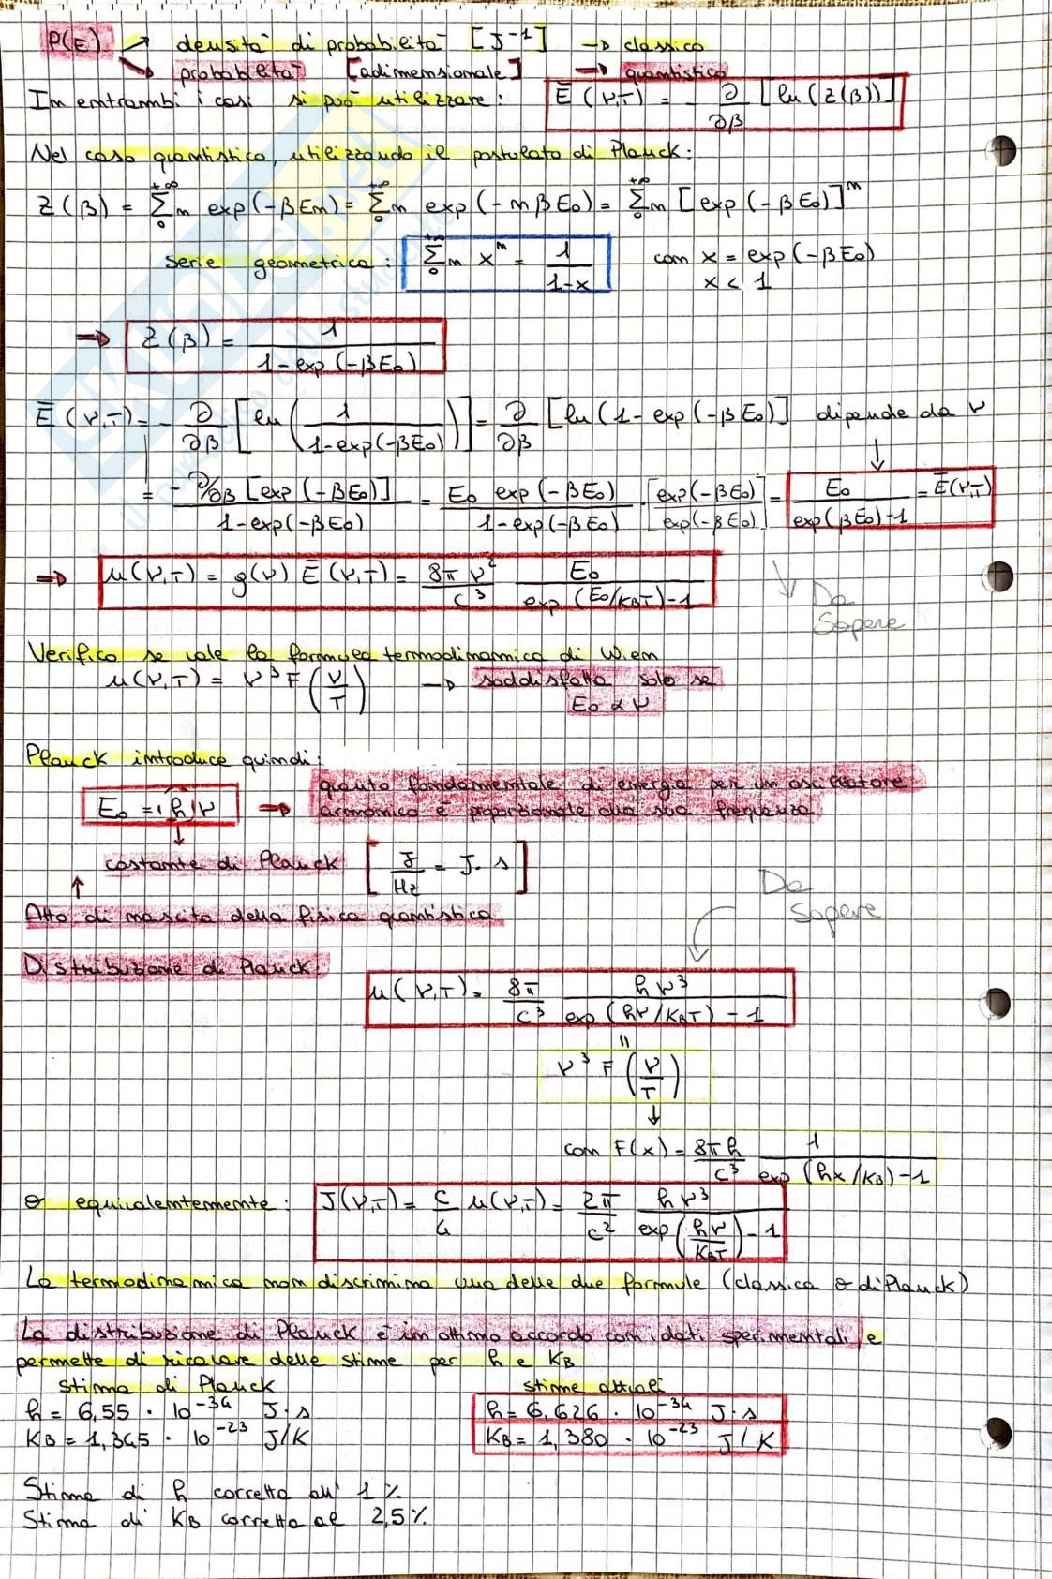 P(E) ↗ densità di probabilità [J⁻¹] → classico
↘ probabilità [adimensionale] → quantistico
In entrambi i casi si può utilizzare: Ē(ν,T) = - ∂/∂β [ln(Z(β))]
Nel caso quantistico, utilizzando il postulato di Planck:
Z(β) = Σₙ₀^{+∞} exp(-βEn) = Σₙ₀^{+∞} exp(-nβE₀) = Σₙ₀^{+∞} [exp(-βE₀)]ⁿ
serie geometrica: Σₙ₀^{+∞} xⁿ = 1/(1-x) con x = exp(-βE₀)
x < 1
⇒ Z(β) = 1/(1-exp(-βE₀))
Ē(ν,T) = - ∂/∂β [ln(1/(1-exp(-βE₀)))] = ∂/∂β [ln(1-exp(-βE₀)] dipende da ν
= - ∂/∂β [exp(-βE₀)]/(1-exp(-βE₀)) = E₀ exp(-βE₀)/(1-exp(-βE₀)) · [exp(-βE₀)/exp(-βE₀)] = E₀/(exp(βE₀)-1) = Ē(ν,T)
⇒ u(ν,T) = g(ν) Ē(ν,T) = 8πν²/c³ E₀/(exp(E₀/KBT)-1)
Da
Sapere
Verifico se vale la formula termodinamica di Wien
u(ν,T) = ν³F(ν/T) → soddisfatta solo se
E₀ ∝ ν
Planck introduce quindi:
E₀ = hν ⇒ quanto fondamentale di energia per un oscillatore
armonico è proporzionale alla sua frequenza
costante di Planck [J/Hz = J·s]
Da
Sapere
Atto di nascita della fisica quantistica
Distribuzione di Planck:
u(ν,T) = 8π/c³ hν³/(exp(hν/KBT)-1)
ν³F(ν/T)
con F(x) = 8πh/c³ 1/(exp(hx/KB)-1)
o equivalentemente: J(ν,T) = c/4 u(ν,T) = 2π/c² hν³/(exp(hν/KBT)-1)
La termodinamica non discrimina una delle due formule (classica o di Planck)
La distribuzione di Planck è in ottimo accordo con i dati sperimentali e
permette di ricavare delle stime per h e KB
stima di Planck stime attuali
h = 6,55 · 10⁻³⁴ J·s h = 6,626 · 10⁻³⁴ J·s
KB = 1,345 · 10⁻²³ J/K KB = 1,380 · 10⁻²³ J/K
Stima di h corretta all' 1%
Stima di KB corretta al 2,5%